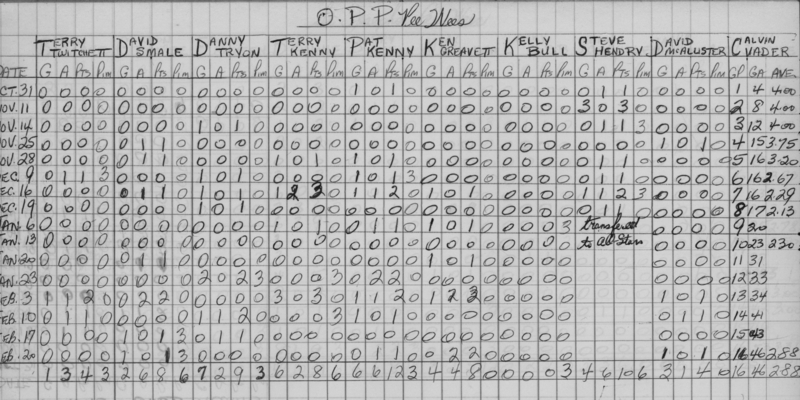 O.P.P. Pee Wees
TERRY TWITCHETT DAVID SMALE DANNY TRYON TERRY KENNY PAT KENNY KEN GREAVETT KELLY BULL STEVE HENDRY DAVID MCALLISTER CALVIN VADER
DATE G A Pts Pim G A Pts Pim G A Pts Pim G A Pts Pim G A Pts Pim G A Pts Pim G A Pts Pim G A Pts Pim G A Pts Pim GP GA AVE.
OCT. 31 0 0 0 0 0 0 0 0 0 0 0 0 0 0 0 0 1 0 1 0 0 0 0 0 0 0 0 0 0 1 1 0 0 0 0 0 1 4 4.00
NOV. 11 0 0 0 0 0 0 0 0 0 0 0 0 0 0 0 0 0 0 0 0 0 0 0 0 0 0 0 0 3 0 3 0 0 0 0 0 2 8 4.00
NOV. 14 0 0 0 0 0 0 0 0 1 0 1 0 0 0 0 0 0 0 0 0 0 0 0 0 0 0 0 0 0 1 1 3 0 0 0 0 3 12 4.00
NOV. 25 0 0 0 0 0 1 1 0 0 0 0 0 0 0 0 0 0 0 0 0 0 0 0 0 0 0 0 0 0 0 0 0 1 0 1 0 4 15 3.75
NOV. 28 0 0 0 0 0 1 1 0 0 0 0 0 1 0 1 0 1 0 1 0 0 0 0 0 0 0 0 0 0 1 1 0 0 0 0 0 5 16 3.20
DEC. 9 0 1 1 3 0 0 0 0 1 0 1 0 0 0 0 0 1 0 1 3 0 0 0 0 0 0 0 0 0 0 0 0 0 0 0 0 6 16 2.67
DEC. 16 0 0 0 0 0 1 1 0 1 0 1 0 1 2 3 0 1 1 2 0 1 0 1 0 0 0 0 0 1 1 2 3 0 0 0 0 7 16 2.29
DEC. 19 0 0 0 0 0 0 0 0 1 0 1 0 0 0 0 0 0 0 0 0 0 0 0 0 0 0 0 0 0 1 1 0 0 0 0 0 8 17 2.13
JAN. 6 0 0 0 0 0 0 0 0 0 0 0 0 1 0 1 0 0 1 1 0 1 0 1 0 0 0 0 3 transferred 0 0 0 0 9 20
JAN. 13 0 0 0 0 0 0 0 0 0 0 0 0 0 0 0 0 0 0 0 0 0 0 0 0 0 0 0 0 to all-Stars 0 0 0 0 10 23 2.30
JAN. 20 0 0 0 0 0 1 1 0 0 0 0 0 0 0 0 0 0 0 0 0 1 0 1 0 0 0 0 0 0 0 0 0 11 31
JAN. 23 0 0 0 0 0 0 0 0 2 0 2 3 0 0 0 3 0 2 2 0 0 0 0 0 0 0 0 0 0 0 0 0 12 33
FEB. 3 1 1 2 0 0 2 2 0 0 0 0 0 3 0 3 0 1 1 2 0 1 2 2 0 0 0 0 0 1 0 1 0 13 34
FEB. 10 0 1 1 0 0 0 0 0 1 1 2 0 0 0 0 3 1 0 1 0 0 0 0 0 0 0 0 0 0 1 1 0 14 41
FEB. 17 0 0 0 0 1 0 1 3 0 1 1 0 0 0 0 0 0 0 0 0 0 0 0 0 0 0 0 0 0 0 0 0 15 43
FEB. 20 0 0 0 0 1 0 1 3 0 0 0 0 0 0 0 0 0 1 1 0 0 2 2 0 0 0 0 0 1 0 1 0 16 46 2.88
1 3 4 3 2 6 8 6 7 2 9 3 6 2 8 6 6 6 12 3 4 4 8 0 0 0 0 3 4 6 10 6 3 1 4 0 16 46 2.88